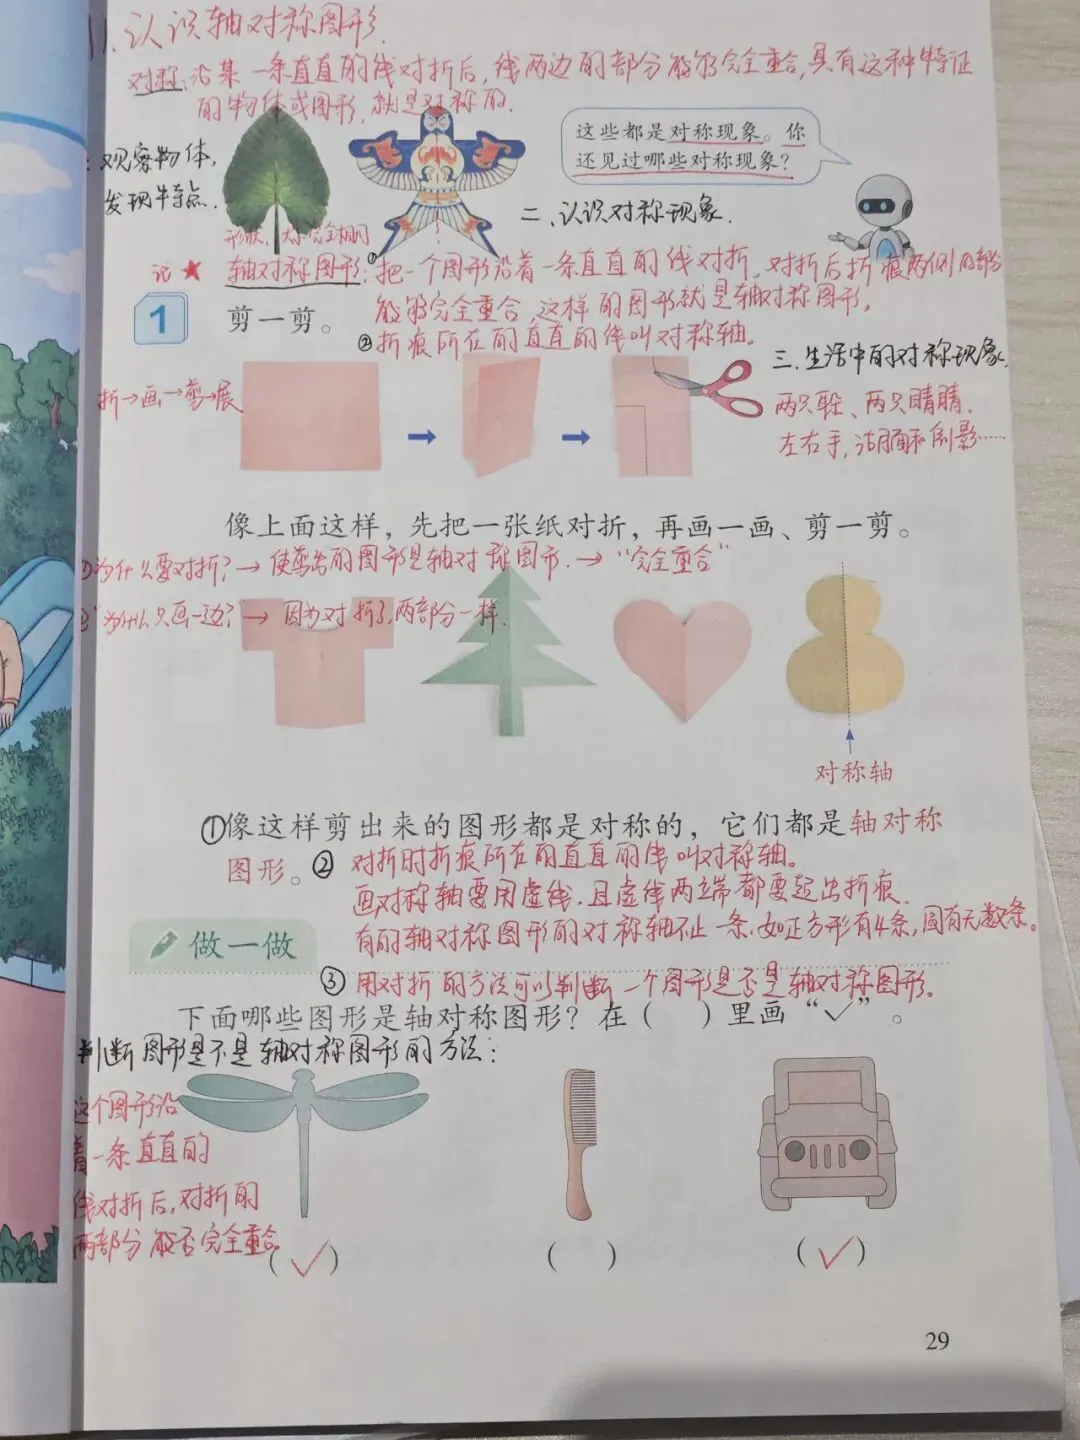 1.认识轴对称图形.
对称:沿某一条直直的线对折后,线两边的部分能够完全重合,具有这种特征
的物体或图形,就是对称的.
:观察物体,
发现特点.
这些都是对称现象。你
还见过哪些对称现象?
二、认识对称现象.
形状、大小完全相同
记★ 轴对称图形:①把一个图形沿着一条直直的线对折,对折后折痕两侧的部分
能够完全重合,这样的图形就是轴对称图形。
1 剪一剪。
②折痕所在的直直的线叫对称轴。
三.生活中的对称现象.
折→画→剪→展
两只耳朵、两只眼睛.
左右手,湖面和倒影……
像上面这样,先把一张纸对折,再画一画、剪一剪。
①为什么要对折?→使剪出的图形是轴对称图形.→“完全重合”
②为什么只画一边?→因为对折了,两部分一样.
对称轴
①像这样剪出来的图形都是对称的,它们都是轴对称
图形。②对折时折痕所在的直直的线叫对称轴。
画对称轴要用虚线.且虚线两端都要超出折痕.
有的轴对称图形的对称轴不止一条.如正方形有4条,圆有无数条。
做一做
③用对折的方法可以判断一个图形是否是轴对称图形。
下面哪些图形是轴对称图形?在( )里画“✓”。
判断图形是不是轴对称图形的方法:
这个图形沿
着一条直直的
线对折后,对折的
两部分能否完全重合.
(✓) ( ) (✓)
29